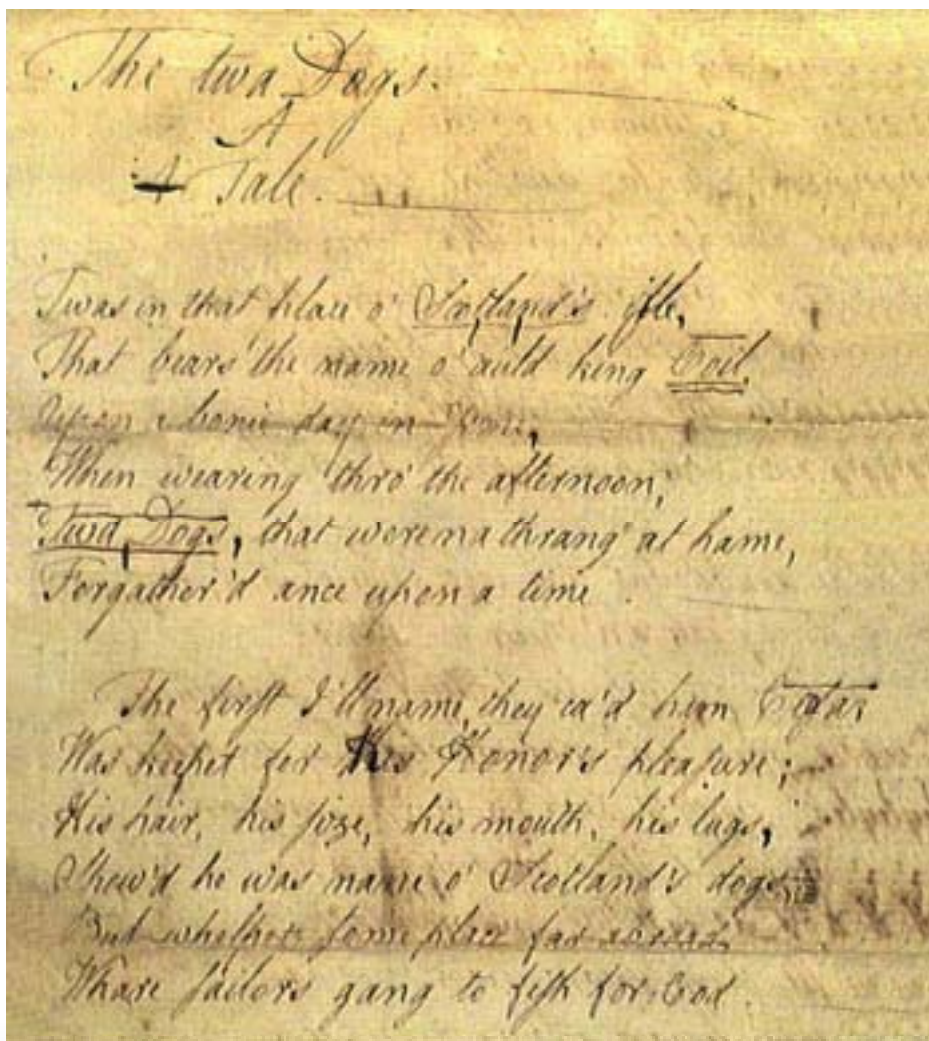 The twa Dogs.
A
A Tale.
Twas in that place o' Scotland's isle,
That bears the name o' auld king Coil,
Upon a bonie day in June,
When wearing thro' the afternoon,
Twa Dogs, that were na thrang at hame,
Forgather'd ance upon a time.
The first I'll name, they ca'd him Cesar
Was keepet for His Honor's pleasure;
His hair, his size, his mouth, his lugs,
Shew'd he was nane o' Scotland's dogs
But whelpet some place far abroad,
Whare sailors gang to fish for Cod.